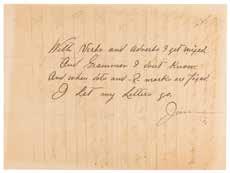 With Verbs and adverbs I get mixed
And Grammar I don't know
And when dots and & marks are fixed
I let my letters go.